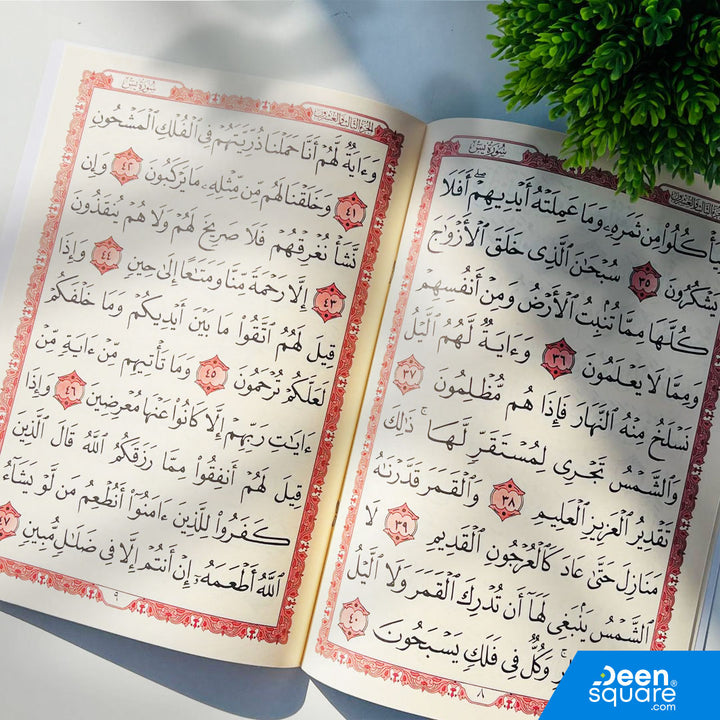 سُورَةُ يسٓ
الجُزءُ الثَّالِثُ وَالعِشرُونَ
مِن ثَمَرِهِۦ وَمَا عَمِلَتْهُ أَيْدِيهِمْۖ أَفَلَا
يَشْكُرُونَ ٣٥ سُبْحَٰنَ ٱلَّذِى خَلَقَ ٱلْأَزْوَٰجَ
كُلَّهَا مِمَّا تُنۢبِتُ ٱلْأَرْضُ وَمِنْ أَنفُسِهِمْ
وَمِمَّا لَا يَعْلَمُونَ ٣٦ وَءَايَةٌ لَّهُمُ ٱلَّيْلُ
نَسْلَخُ مِنْهُ ٱلنَّهَارَ فَإِذَا هُم مُّظْلِمُونَ ٣٧
وَٱلشَّمْسُ تَجْرِى لِمُسْتَقَرٍّ لَّهَاۚ ذَٰلِكَ
تَقْدِيرُ ٱلْعَزِيزِ ٱلْعَلِيمِ ٣٨ وَٱلْقَمَرَ قَدَّرْنَٰهُ
مَنَازِلَ حَتَّىٰ عَادَ كَٱلْعُرْجُونِ ٱلْقَدِيمِ ٣٩ لَا
ٱلشَّمْسُ يَنۢبَغِى لَهَآ أَن تُدْرِكَ ٱلْقَمَرَ وَلَا ٱلَّيْلُ
وَكُلٌّ فِى فَلَكٍ يَسْبَحُونَ ٤٠
٨
سُورَةُ يسٓ
الجُزءُ الثَّالِثُ وَالعِشرُونَ
وَءَايَةٌ لَّهُمْ أَنَّا حَمَلْنَا ذُرِّيَّتَهُمْ فِى ٱلْفُلْكِ ٱلْمَشْحُونِ
٤١ وَخَلَقْنَا لَهُم مِّن مِّثْلِهِۦ مَا يَرْكَبُونَ ٤٢ وَإِن
نَّشَأْ نُغْرِقْهُمْ فَلَا صَرِيخَ لَهُمْ وَلَا هُمْ يُنقَذُونَ
٤٣ إِلَّا رَحْمَةً مِّنَّا وَمَتَٰعًا إِلَىٰ حِينٍ ٤٤ وَإِذَا
قِيلَ لَهُمُ ٱتَّقُوا۟ مَا بَيْنَ أَيْدِيكُمْ وَمَا خَلْفَكُمْ
لَعَلَّكُمْ تُرْحَمُونَ ٤٥ وَمَا تَأْتِيهِم مِّنْ ءَايَةٍ مِّنْ
ءَايَٰتِ رَبِّهِمْ إِلَّا كَانُوا۟ عَنْهَا مُعْرِضِينَ ٤٦ وَإِذَا
قِيلَ لَهُمْ أَنفِقُوا۟ مِمَّا رَزَقَكُمُ ٱللَّهُ قَالَ ٱلَّذِينَ
كَفَرُوا۟ لِلَّذِينَ ءَامَنُوٓا۟ أَنُطْعِمُ مَن لَّوْ يَشَآءُ
ٱللَّهُ أَطْعَمَهُۥٓ إِنْ أَنتُمْ إِلَّا فِى ضَلَٰلٍ مُّبِينٍ ٤٧
٩
Deen
square
.com